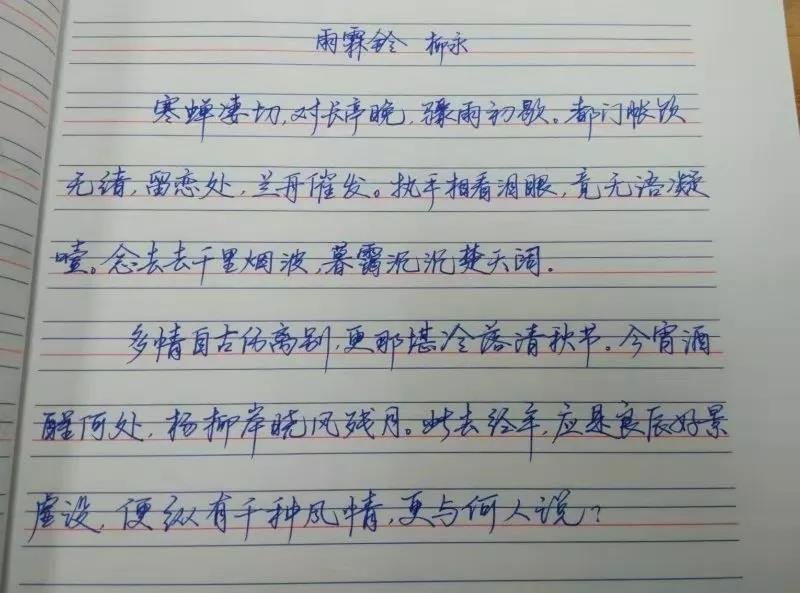 雨霖铃 柳永
寒蝉凄切,对长亭晚,骤雨初歇。都门帐饮
无绪,留恋处,兰舟催发。执手相看泪眼,竟无语凝
噎。念去去千里烟波,暮霭沉沉楚天阔.
多情自古伤离别,更那堪冷落清秋节。今宵酒
醒何处,杨柳岸晓风残月。此去经年,应是良辰好景
虚设,便纵有千种风情,更与何人说?